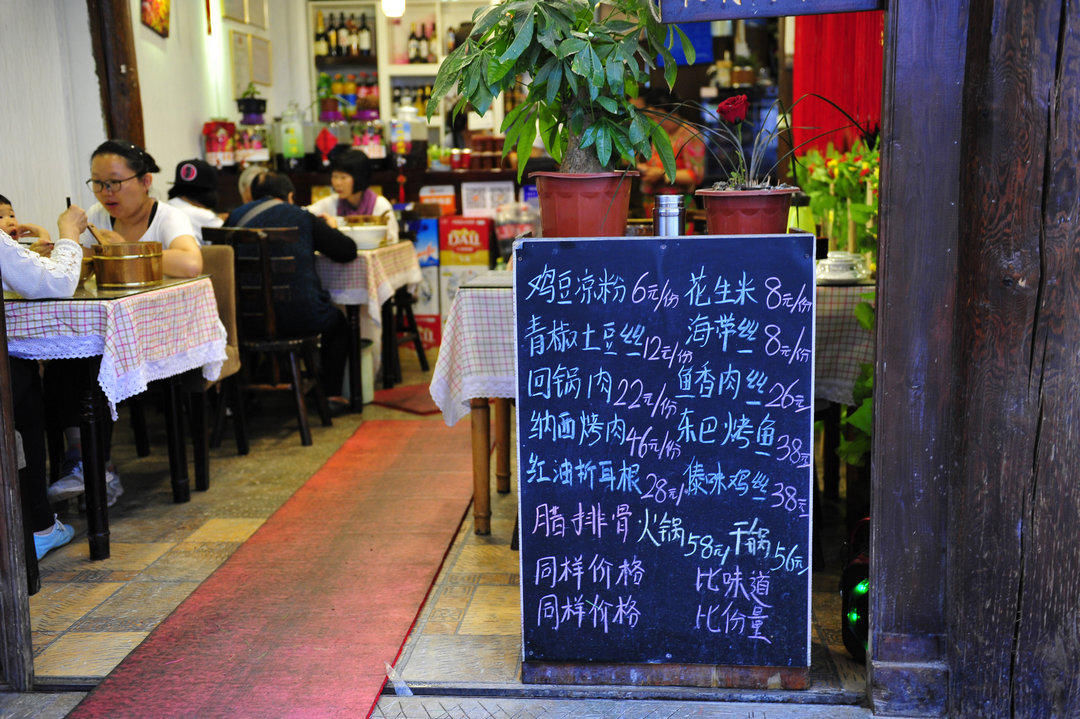 鸡豆凉粉6元/份 花生米8元/份
青椒土豆丝12元/份 海带丝8元/份
回锅肉22元/份 鱼香肉丝26元
纳西烤肉46元/份 东巴烤鱼38元
红油折耳根28元/ 傣味鸡丝38元
腊排骨 火锅58元/ 干锅56元
同样价格 比味道
同样价格 比份量